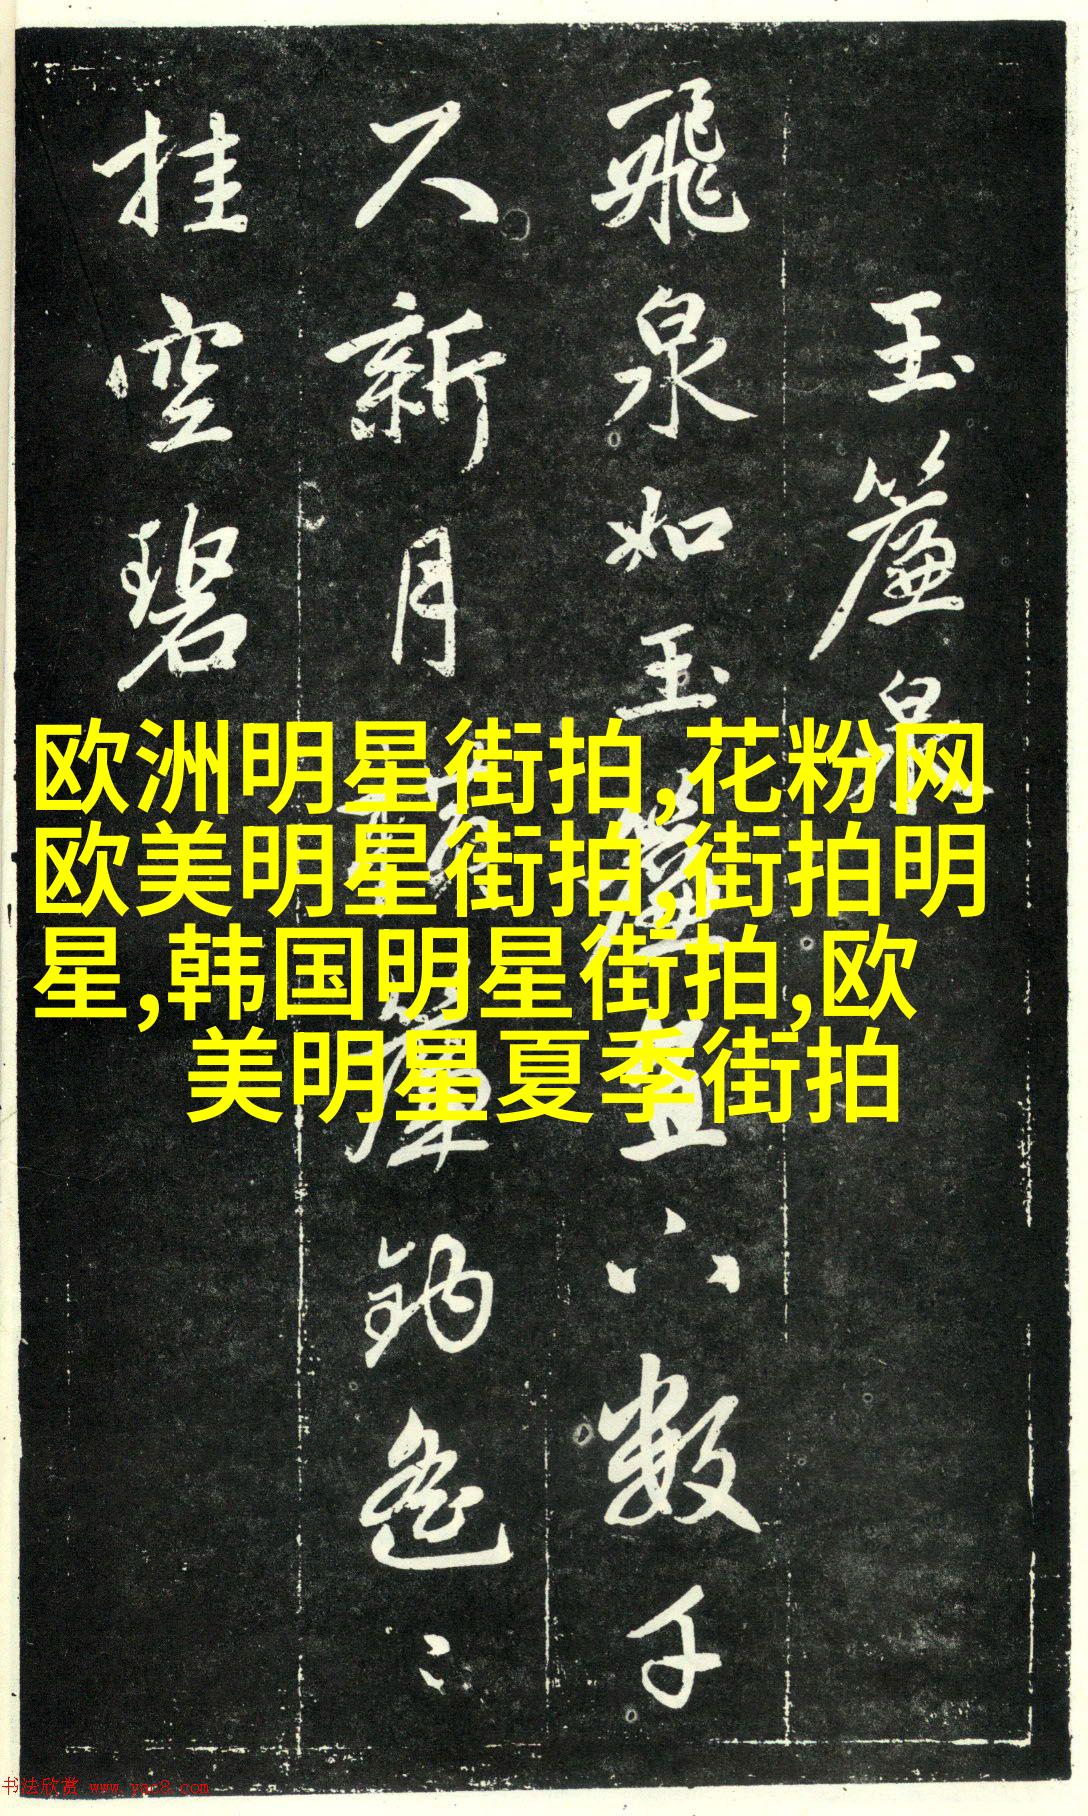 玉簾泉
飛泉如玉簾直下數千
尺新月橫簾鈎遙〻
挂空碧
欧洲明星街拍,花粉网
欧美明星街拍,街拍明
星,韩国明星街拍,欧
美明星夏季街拍
书法欣赏 www.yac8.com